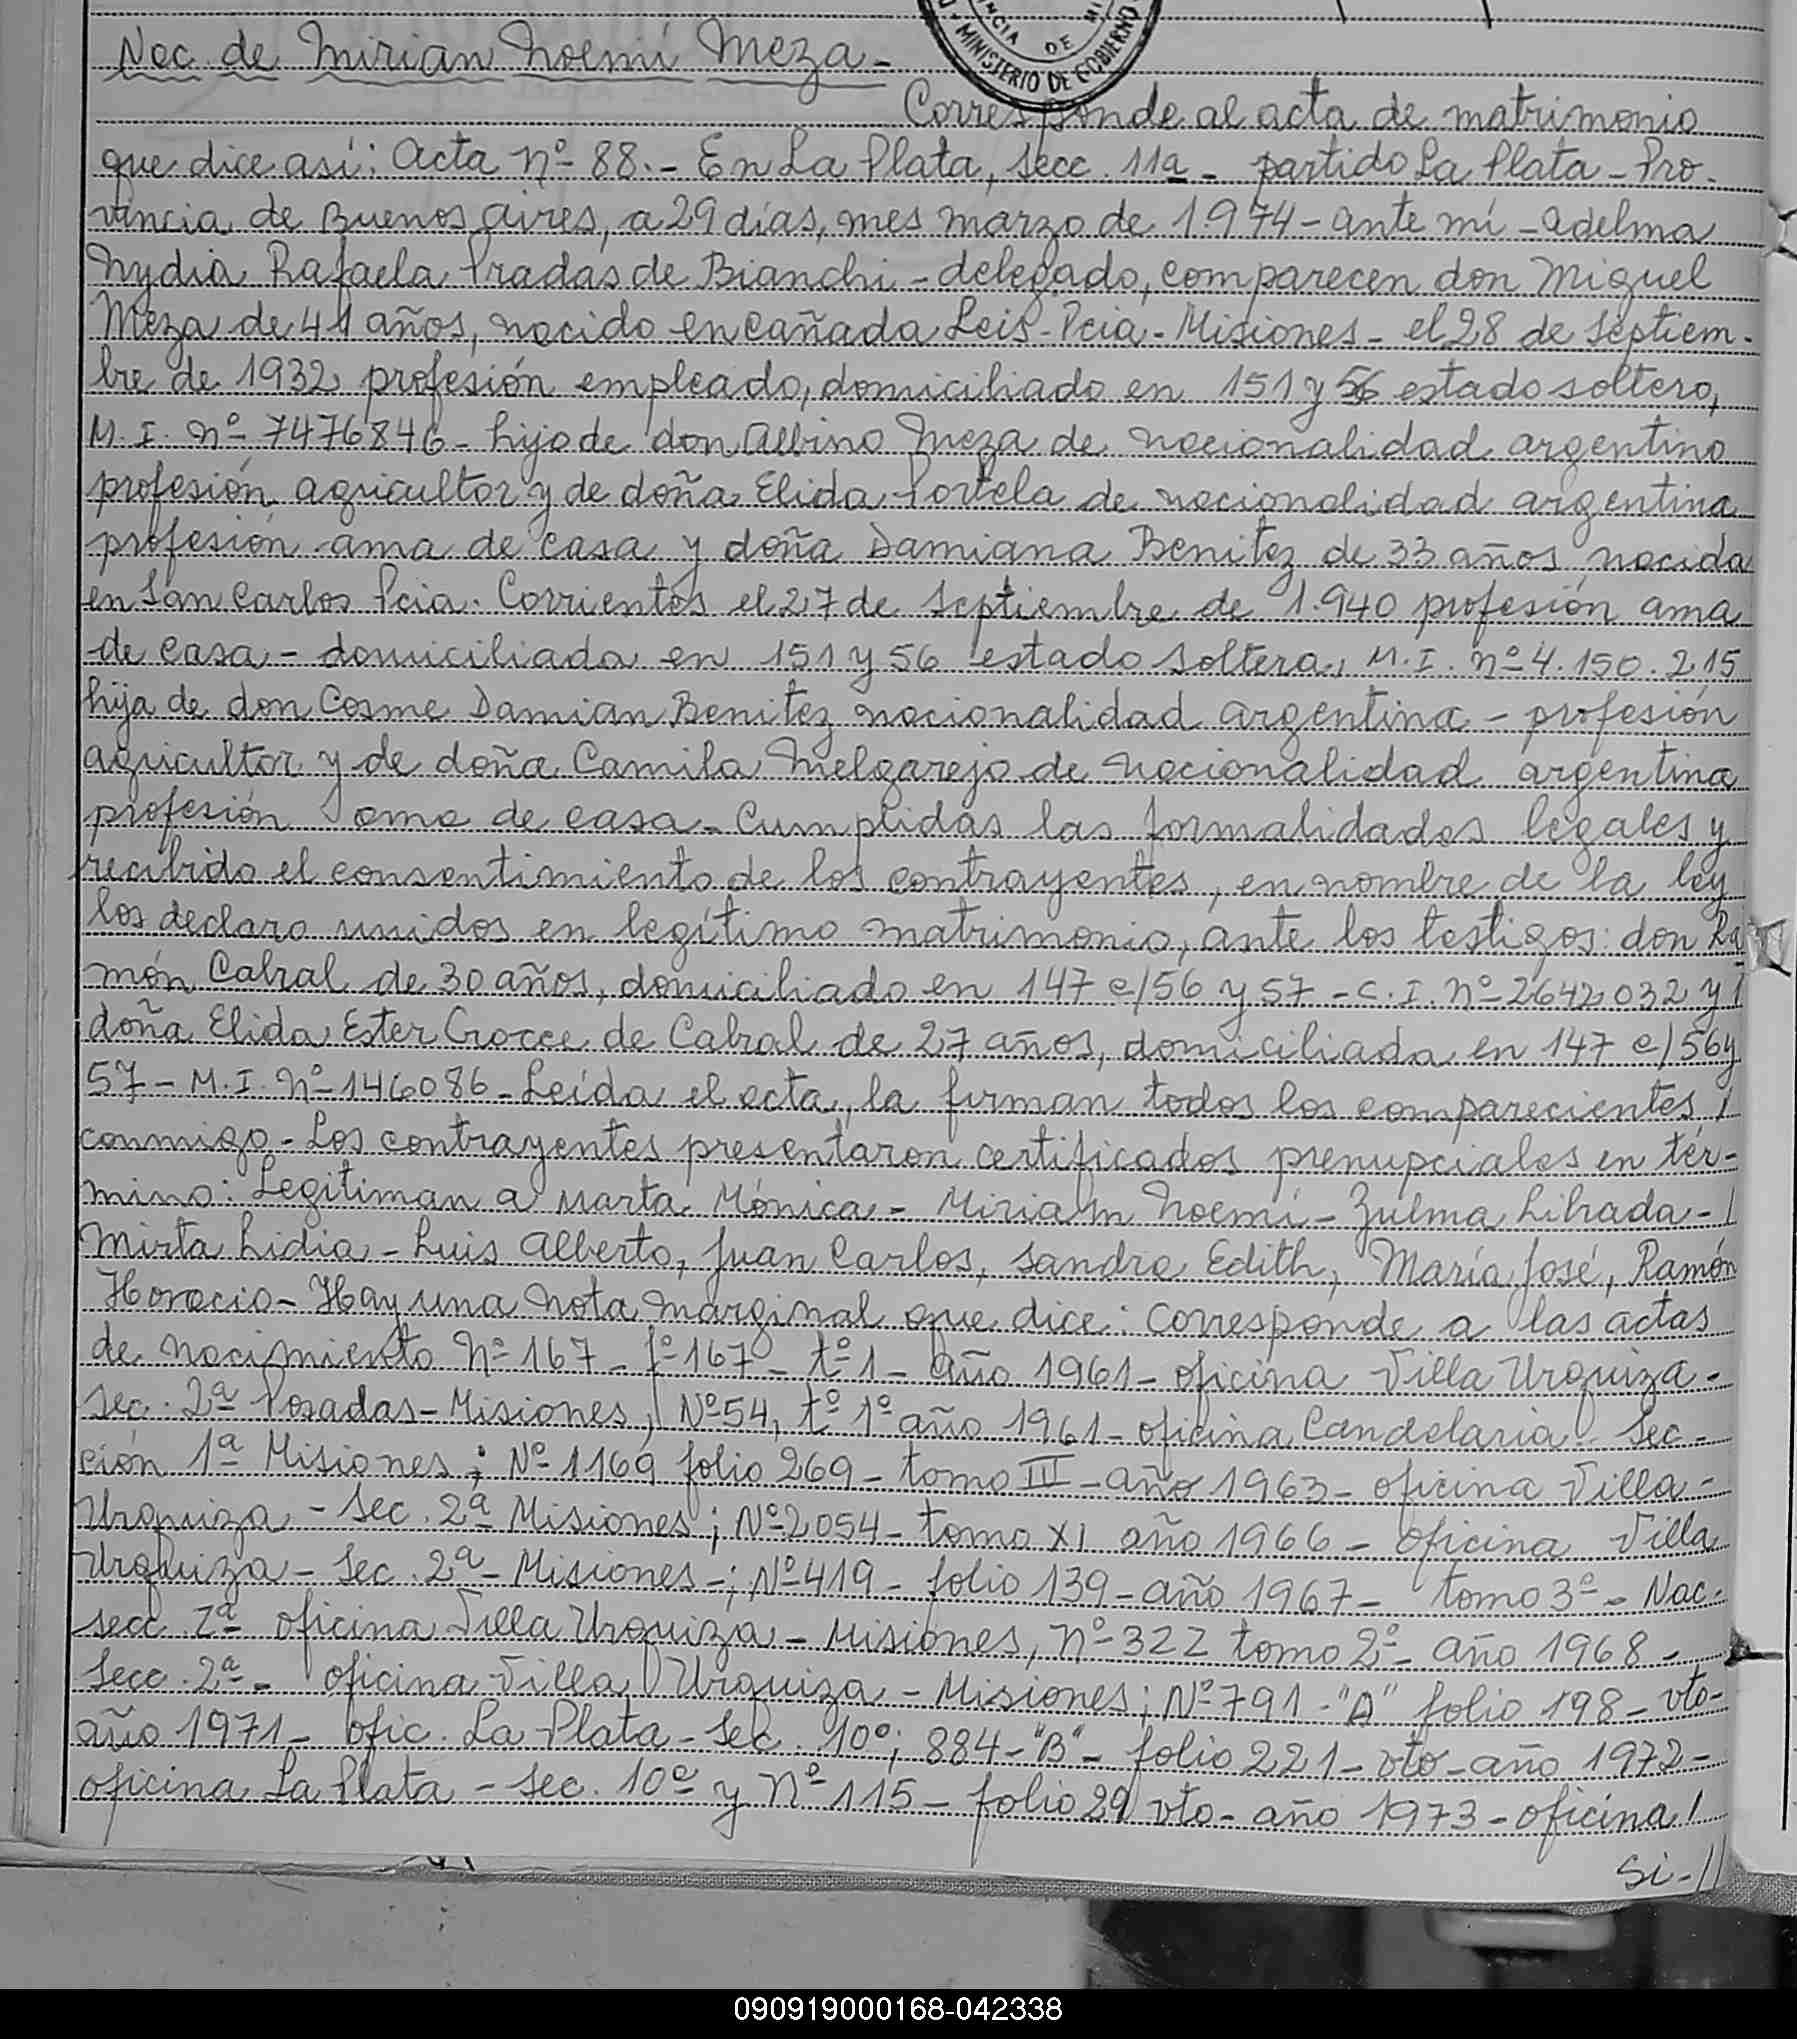 NCIA DE MI
MINISTERIO DE GOBIERNO
Nac. de Mirian Noemí Meza -
Corresponde al acta de matrimonio
que dice así: Acta Nº 88. - En La Plata, secc. 11a - partido La Plata - Pro-
vincia de Buenos Aires, a 29 días, mes marzo de 1.974 - ante mí - Adelma
Nydia Rafaela Pradas de Bianchi - delegado, comparecen don Miguel
Meza de 41 años, nacido en Cañada Leis - Pcia - Misiones - el 28 de septiem-
bre de 1932 profesión empleado, domiciliado en 151 y 56 estado soltero,
M. I. Nº 7476846 - hijo de don Albino Meza de nacionalidad argentino
profesión agricultor y de doña Elida Portela de nacionalidad argentina
profesión ama de casa y doña Damiana Benitez de 33 años nacida
en San Carlos Pcia. Corrientes el 27 de septiembre de 1.940 profesión ama
de casa - domiciliada en 151 y 56 estado soltera, M. I. Nº 4.150.215
hija de don Cosme Damian Benitez nacionalidad argentina - profesión
agricultor y de doña Camila Melgarejo de nacionalidad argentina
profesión ama de casa - Cumplidas las formalidades legales y
recibido el consentimiento de los contrayentes, en nombre de la ley
los declaro unidos en legítimo matrimonio, ante los testigos: don Ra
món Cabral de 30 años, domiciliado en 147 e/56 y 57 - C. I. Nº 2642032 y /
doña Elida Ester Crocce de Cabral de 27 años, domiciliada en 147 e/56 y
57 - M. I. Nº 146086 - Leída el acta, la firman todos los comparecientes /
conmigo - Los contrayentes presentaron certificados prenupciales en tér-
mino: Legitiman a Marta Mónica - Miriam Noemí - Zulma Librada - /
Mirta Lidia - Luis Alberto, Juan Carlos, Sandra Edith, María José, Ramón
Horacio - Hay una nota marginal que dice: Corresponde a las actas
de nacimiento Nº 167 - fº 167 - tº 1 - año 1961 - oficina Villa Urquiza -
sec. 2ª Posadas - Misiones, Nº 54, tº 1º año 1961 - oficina Candelaria - Sec-
ción 1ª Misiones; Nº 1169 folio 269 - tomo III - año 1963 - oficina Villa -
Urquiza - Sec. 2ª Misiones; Nº 2054 - tomo XI año 1966 - oficina Villa
Urquiza - Sec. 2ª - Misiones -; Nº 419 - folio 139 - año 1967 - tomo 3º - Nac -
secc. 2ª oficina Villa Urquiza - Misiones, Nº 322 tomo 2º - año 1968 -
Secc. 2ª - oficina Villa Urquiza - Misiones; Nº 791 - "A" folio 198 - vto -
año 1971 - ofic. La Plata - Sec. 10º; 884 - "B" - folio 221 - vto - año 1972 -
oficina La Plata - sec. 10º y Nº 115 - folio 29 vto - año 1973 - oficina /
Si - //
090919000168-042338